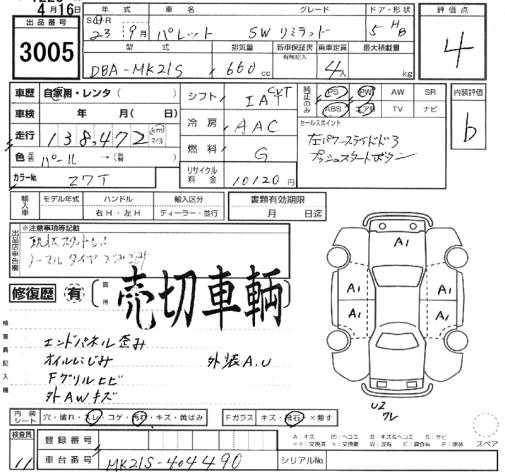 4月16日
出品番号
3005
年式 車名 グレード ドア・形状 評価点
23 9月 パレット SW リミテッド 5 HB
4
型式 排気量 新車保証書 乗車定員 最大積載量
有無記入
DBA-MK21S 660cc 4人 kg
車歴 自家用・レンタ( )
シフト IA CVT
純正のみ PS PW AW SR
ABS エアB TV ナビ
内装評価
b
車検 年 月( 日)
走行 138,472 km マイル
冷房 AAC
セールスポイント
左パワースライドドア
プッシュスタートボタン
色 パール →( )
燃料 G
カラーNo. Z7T
リサイクル料金 10120円
輸入車 モデル年式 ハンドル 輸入区分
年 右H・左H ディーラー・並行
書類有効期限
月 日迄
出品店申告欄
※注意事項等記載
修復歴 有 箇所
売切車輌
検査員記入欄
エンドパネル歪み
オイルにじみ 外装A.U
Fグリルヒビ
外AWキズ
A1
A1 A1
A1 A1
U2
スペア
内装シート 穴・破れ・スレ・コゲ・汚れ・キズ・黄ばみ
Fガラス キズ・飛石・×要す
検査員
11
登録番号
車台番号 MK21S-404490
シリアルNo.